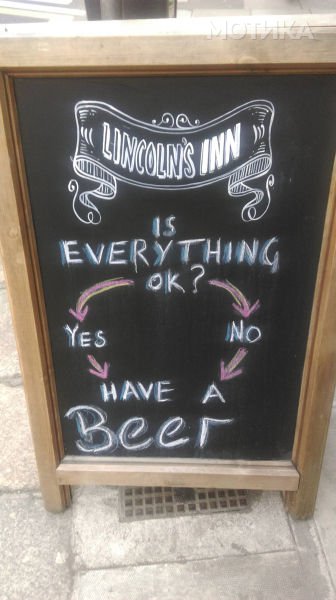 МОТИКА
LINCOLN'S INN
IS
EVERYTHING
OK?
YES NO
HAVE A
Beer